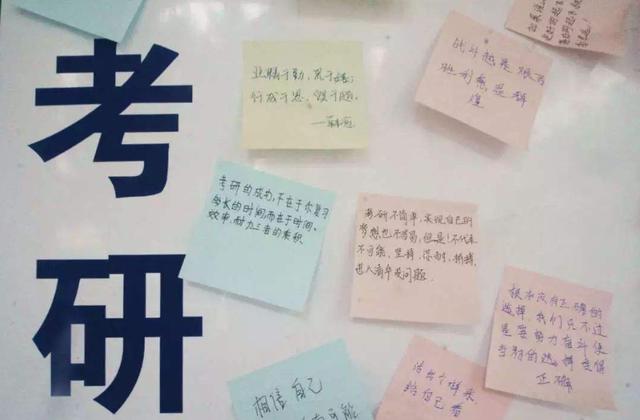 考
研
业精于勤,荒于嬉;
行成于思,毁于随。
——韩愈
战斗越是艰苦
胜利愈是辉
煌
考研的成功,不在于你复习
学长的时间而在于时间、
效率、耐力三者的乘积
考研不简单,实现自己的
梦想也不容易,但是!不代表
不可能,坚持
进入清华没问题。
根本没有正确的
选择,我们只不过
是要努力奋斗使
当初的选择变得
正确
相信自己
活出个样来
给自己看